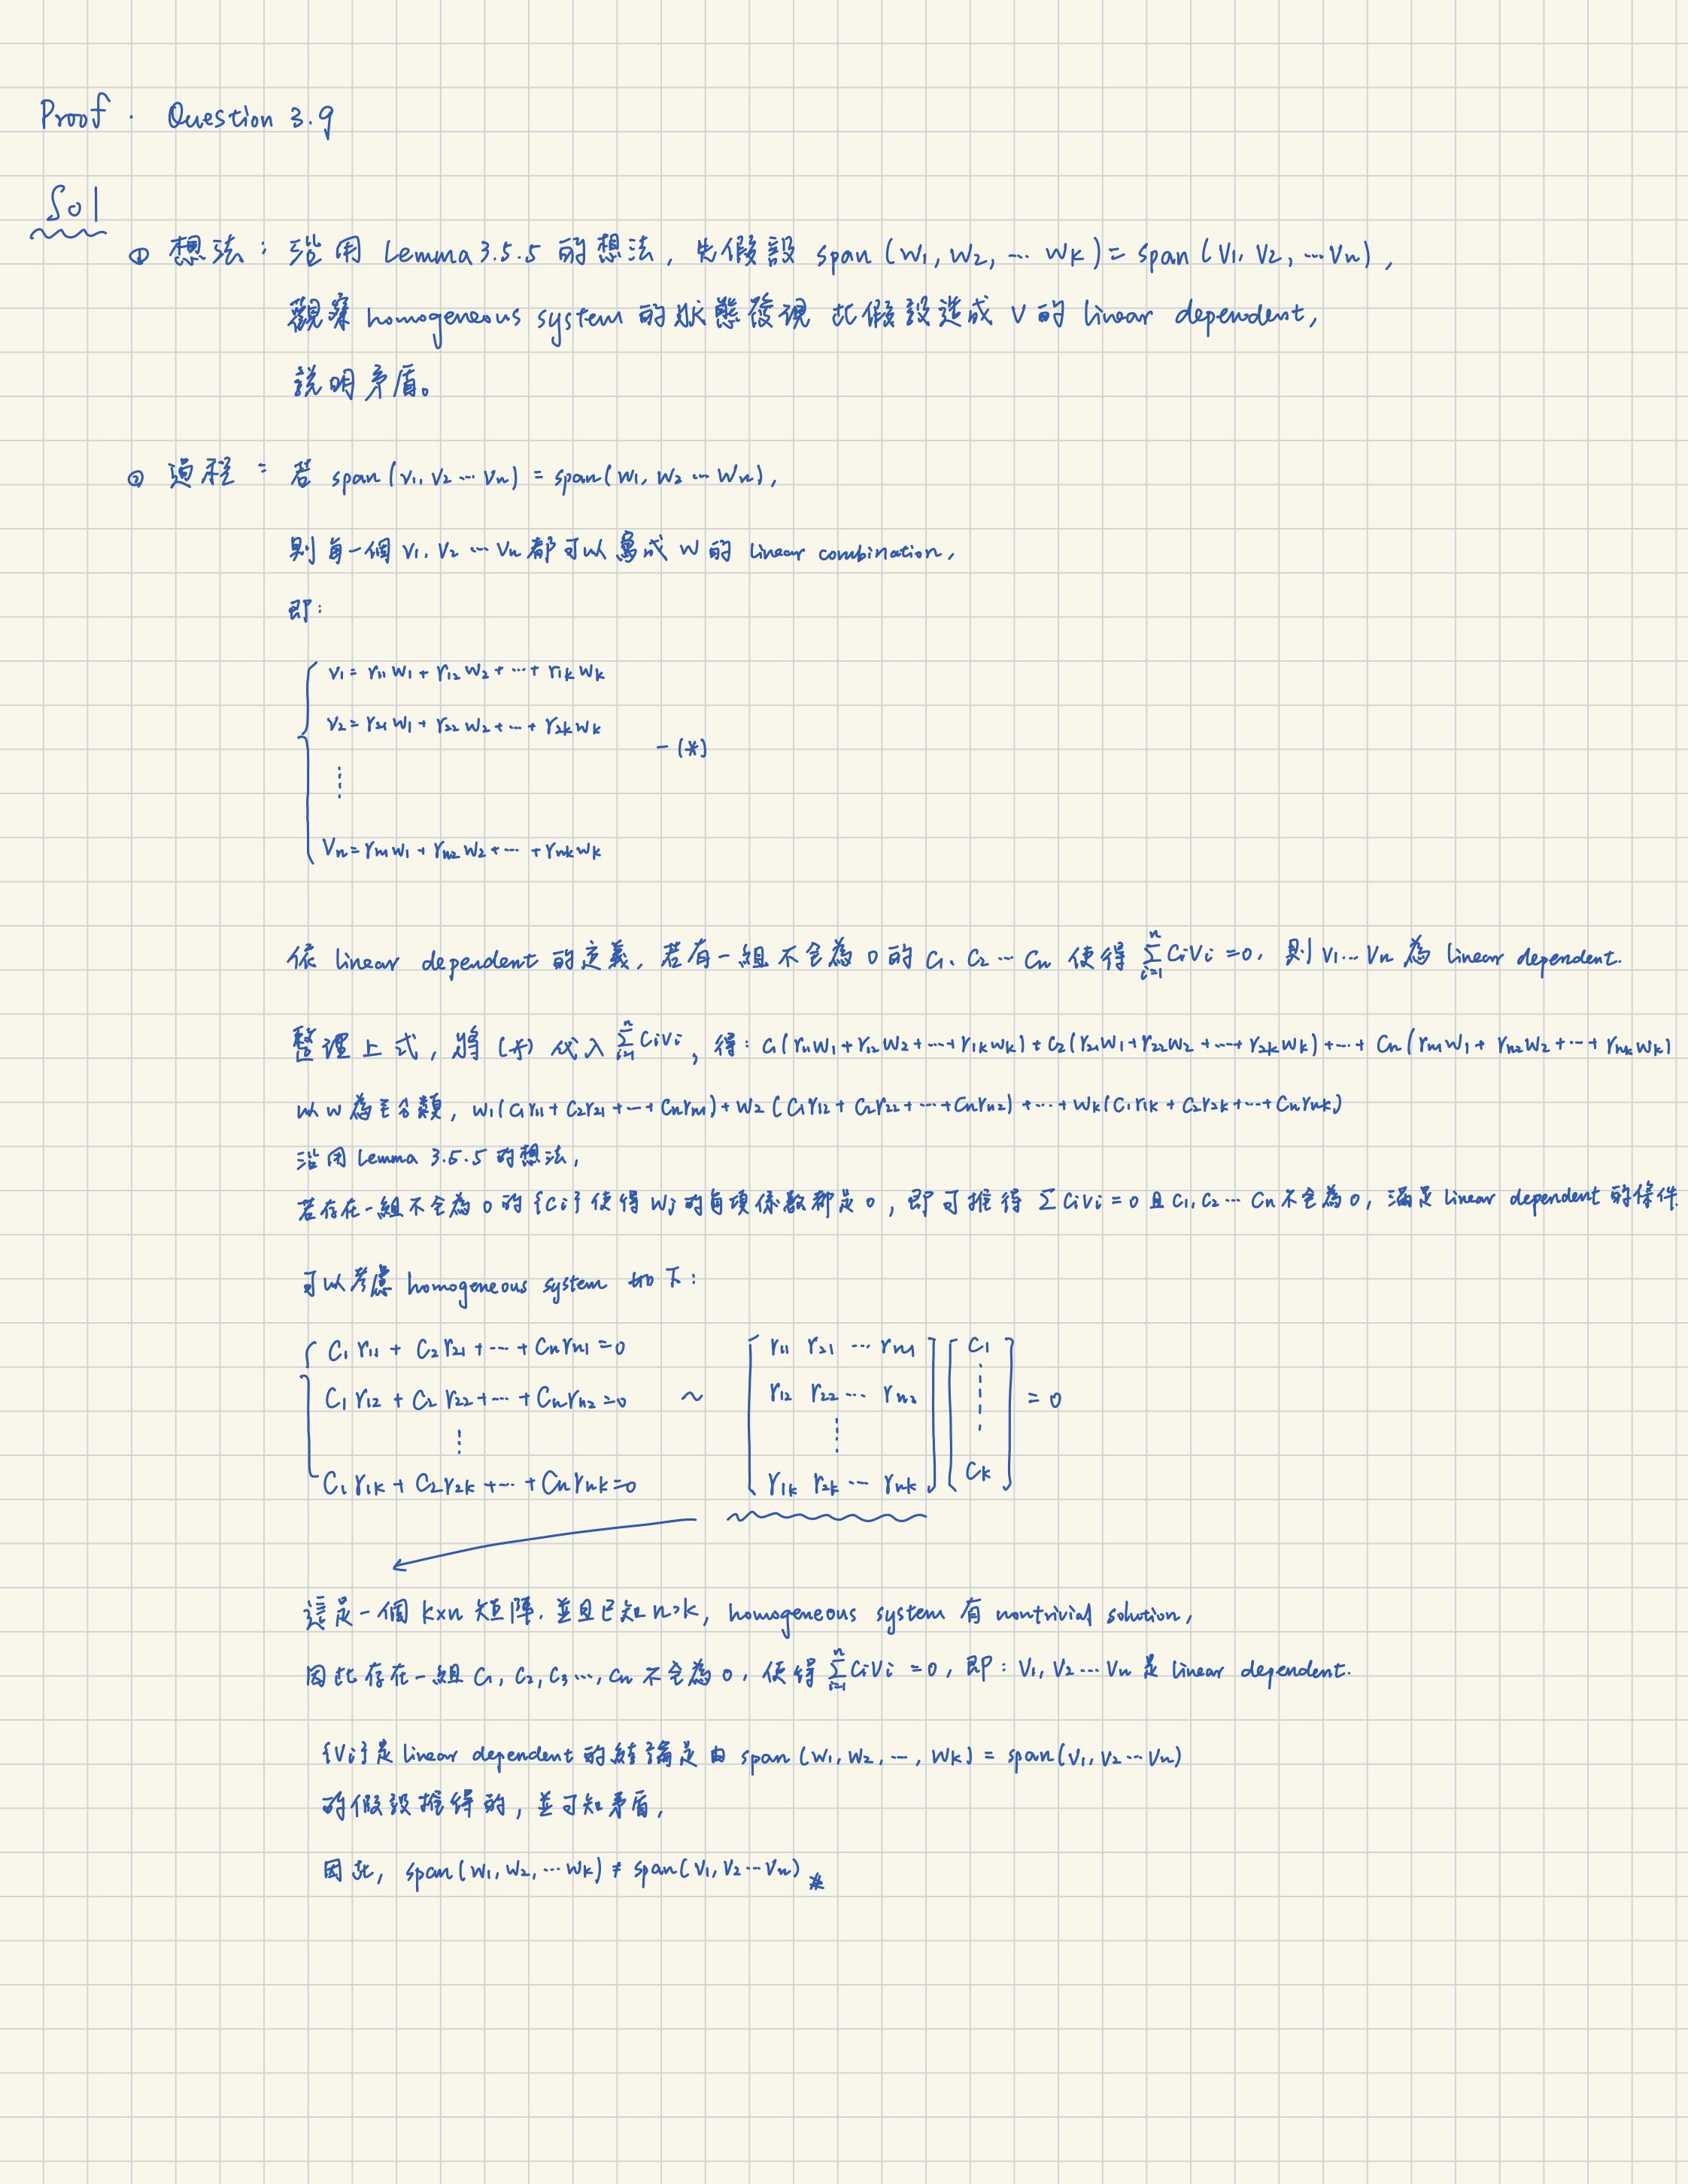 Proof . Question 3.9
Sol
① 想法：沿用 Lemma 3.5.5 的想法，先假設 span (w1, w2, … wk) = span (v1, v2, … vn)，
觀察 homogeneous system 的狀態發現 此假設造成 V 的 linear dependent，
說明矛盾。
② 過程：若 span (v1, v2 … vn) = span (w1, w2 … wn)，
則每一個 v1, v2 … vn 都可以寫成 w 的 linear combination，
即：
v1 = r11 w1 + r12 w2 + … + r1k wk
v2 = r21 w1 + r22 w2 + … + r2k wk
- (*)
⋮
vn = rn1 w1 + rn2 w2 + … + rnk wk
依 linear dependent 的定義，若有一組不全為 0 的 c1, c2 … cn 使得 Σ_{i=1}^{n} ci vi = 0，則 v1 … vn 為 linear dependent.
整理上式，將 (*) 代入 Σ_{i=1}^{n} ci vi，得：c1 (r11 w1 + r12 w2 + … + r1k wk) + c2 (r21 w1 + r22 w2 + … + r2k wk) + … + cn (rn1 w1 + rn2 w2 + … + rnk wk)
以 w 為主分類，w1 (c1 r11 + c2 r21 + … + cn rn1) + w2 (c1 r12 + c2 r22 + … + cn rn2) + … + wk (c1 r1k + c2 r2k + … + cn rnk)
沿用 Lemma 3.5.5 的想法，
若存在一組不全為 0 的 {ci} 使得 wj 的每項係數都是 0，即可推得 Σ ci vi = 0 且 c1, c2 … cn 不全為 0，滿足 linear dependent 的條件.
可以考慮 homogeneous system 如下：
c1 r11 + c2 r21 + … + cn rn1 = 0 [ r11 r21 … rn1 ] [ c1 ]
c1 r12 + c2 r22 + … + cn rn2 = 0 ~ [ r12 r22 … rn2 ] [ ⋮ ] = 0
⋮ ⋮
c1 r1k + c2 r2k + … + cn rnk = 0 [ r1k r2k … rnk ] [ ck ]
這是一個 k×n 矩陣. 並且已知 n>k，homogeneous system 有 nontrivial solution，
因此存在一組 c1, c2, c3 …, cn 不全為 0，使得 Σ_{i=1}^{n} ci vi = 0，即：v1, v2 … vn 是 linear dependent.
{vi} 是 linear dependent 的結論是由 span (w1, w2, …, wk) = span (v1, v2 … vn)
的假設推得的，並可知矛盾，
因此，span (w1, w2, … wk) ≠ span (v1, v2 … vn) ※